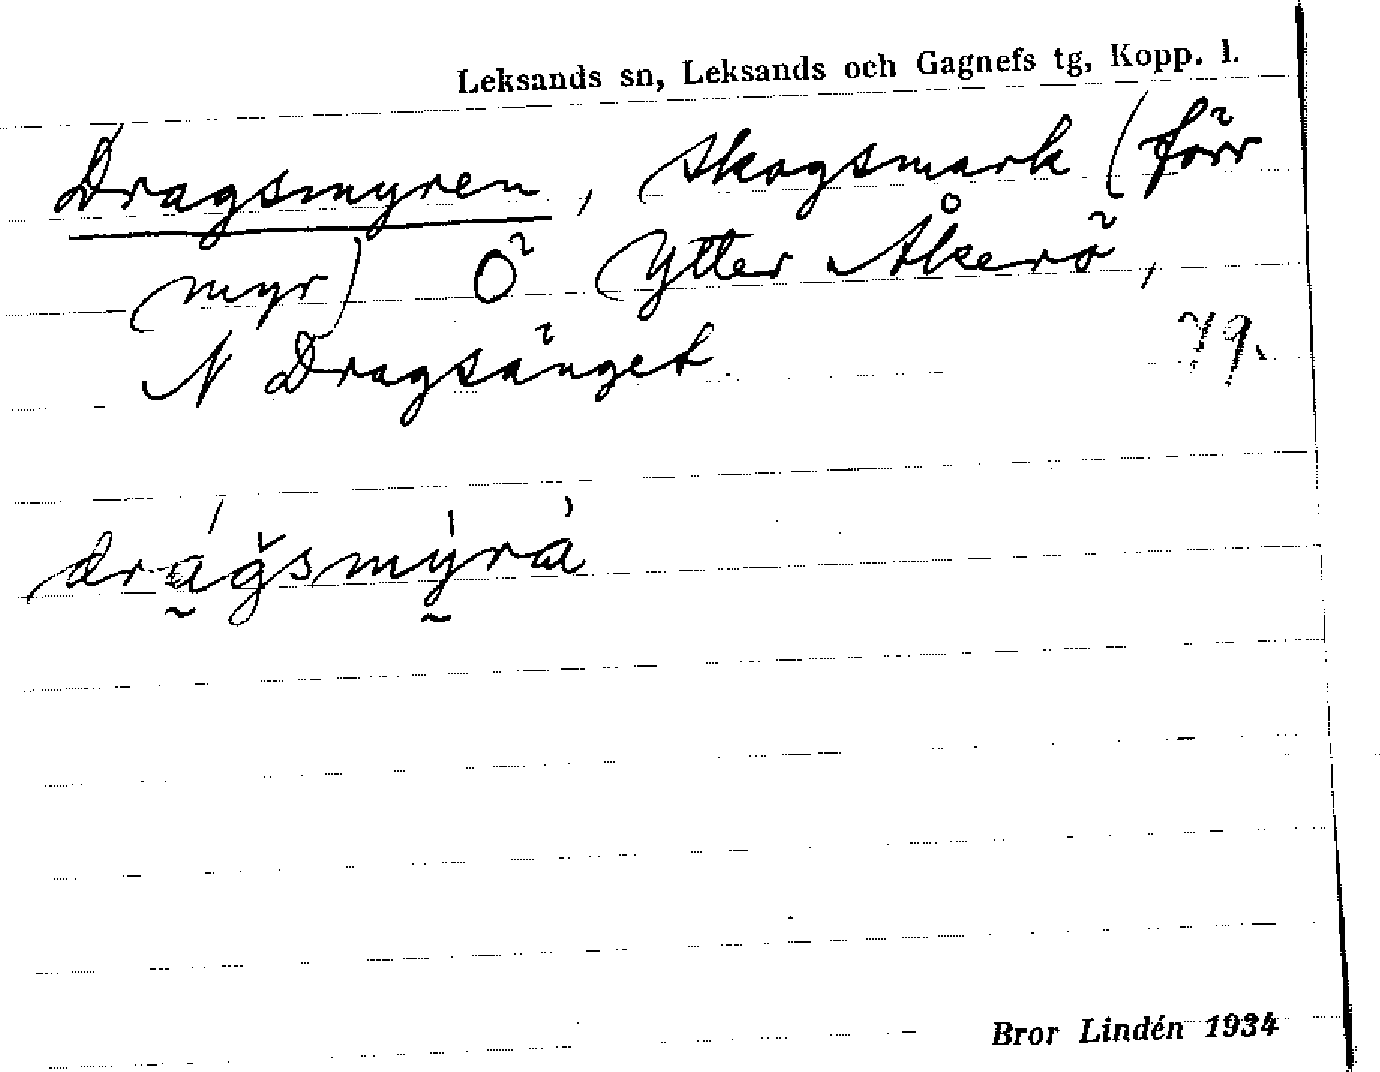 Leksands sn, Leksands och Gagnefs tg, Kopp. l.
Dragsmyren, skogsmark (förr
myr) Ö Ytter Åkerö,
N Dragsänget 79.
drá̰ǧsmý̰rà
Bror Lindén 1934